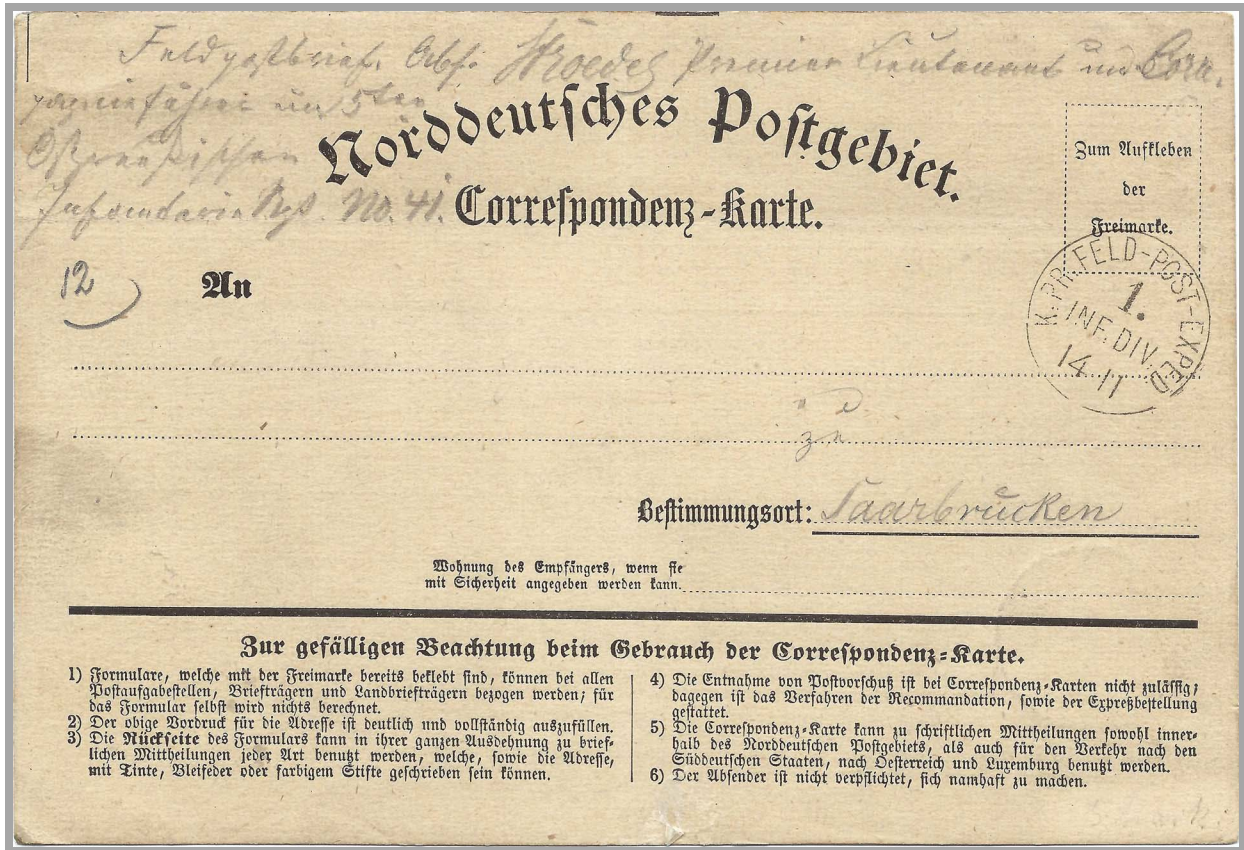 Feldpostbrief. Abs. Premier Lieutenant und Com-
pagnieführer im 5ten
Ostpreußischen
Infanterie Rgt. No. 41.
Norddeutsches Postgebiet.
Correspondenz-Karte.
Zum Aufkleben
der
Freimarke.
K. PR. FELD-POST-EXPED
1.
INF. DIV.
14 11
12
An
zu
Bestimmungsort: Saarbrücken
Wohnung des Empfängers, wenn sie
mit Sicherheit angegeben werden kann.
Zur gefälligen Beachtung beim Gebrauch der Correspondenz-Karte.
1) Formulare, welche mit der Freimarke bereits beklebt sind, können bei allen
Postaufgabestellen, Briefträgern und Landbriefträgern bezogen werden; für
das Formular selbst wird nichts berechnet.
2) Der obige Vordruck für die Adresse ist deutlich und vollständig auszufüllen.
3) Die Rückseite des Formulars kann in ihrer ganzen Ausdehnung zu brief-
lichen Mittheilungen jeder Art benutzt werden, welche, sowie die Adresse,
mit Tinte, Bleifeder oder farbigem Stifte geschrieben sein können.
4) Die Entnahme von Postvorschuß ist bei Correspondenz-Karten nicht zulässig;
dagegen ist das Verfahren der Recommandation, sowie der Expreßbestellung
gestattet.
5) Die Correspondenz-Karte kann zu schriftlichen Mittheilungen sowohl inner-
halb des Norddeutschen Postgebiets, als auch für den Verkehr nach den
Süddeutschen Staaten, nach Oesterreich und Luxemburg benutzt werden.
6) Der Absender ist nicht verpflichtet, sich namhaft zu machen.